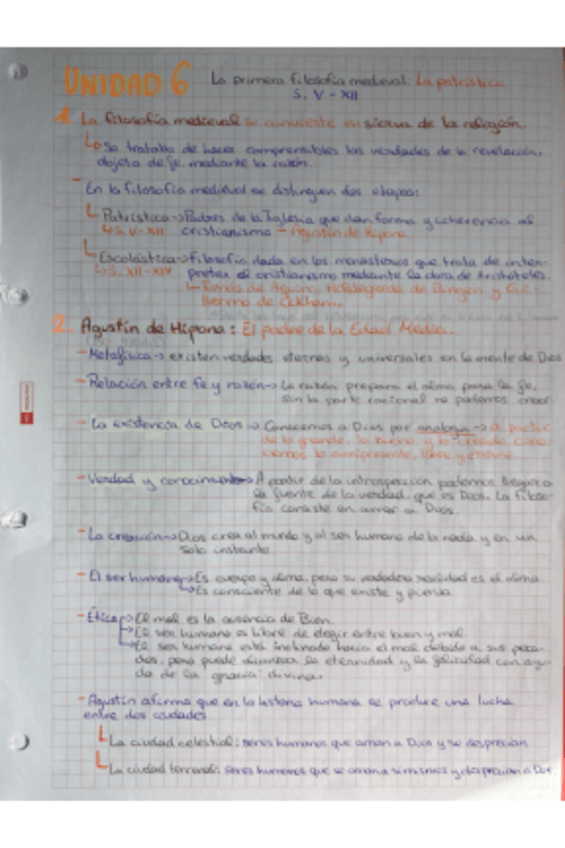 UNIDAD 6 La primera filosofía medieval: La patrística.
S. V - XII
1. La filosofía medieval se convierte en sierva de la religión.
Se trataba de hacer comprensibles las verdades de la revelación,
objeto de fe, mediante la razón.
- En la filosofía medieval se distinguen dos etapas:
Patrística → Padres de la Iglesia que dan forma y coherencia al
S. V - XII cristianismo - Agustín de Hipona
Escolástica → Filosofía dada en los monasterios que trata de inter-
S. XII - XIV pretar el cristianismo mediante la obra de Aristóteles.
Tomás de Aquino, Hildegarda de Bingen y Gui-
llermo de Ockham.
2. Agustín de Hipona: El padre de la Edad Media.
- Metafísica → existen verdades eternas y universales en la mente de Dios
- Relación entre fe y razón → La razón prepara el alma para la fe,
sin la parte racional no podemos creer
- La existencia de Dios → Conocemos a Dios por analogía → a partir
de lo grande, lo bueno y lo creado, cono-
cemos lo omnipresente, libre y eterno.
- Verdad y conocimiento → A partir de la introspección podemos llegar a
la fuente de la verdad, que es Dios. La filoso-
fía consiste en amar a Dios.
- La creación → Dios crea al mundo y al ser humano de la nada y en un
solo instante.
- El ser humano → Es cuerpo y alma, pero su verdadera realidad es el alma.
→ Es consciente de lo que existe y piensa
- Ética → El mal es la ausencia de Bien.
→ El ser humano es libre de elegir entre buen y mal.
→ El ser humano está inclinado hacia el mal debido a sus peca-
dos, pero puede alcanzar la eternidad y la felicidad con ayu-
da de la gracia divina.
- Agustín afirma que en la historia humana se produce una lucha
entre dos ciudades
La ciudad celestial: seres humanos que aman a Dios y se desprecian
La ciudad terrenal: seres humanos que se aman a si mismos y desprecian a Dios